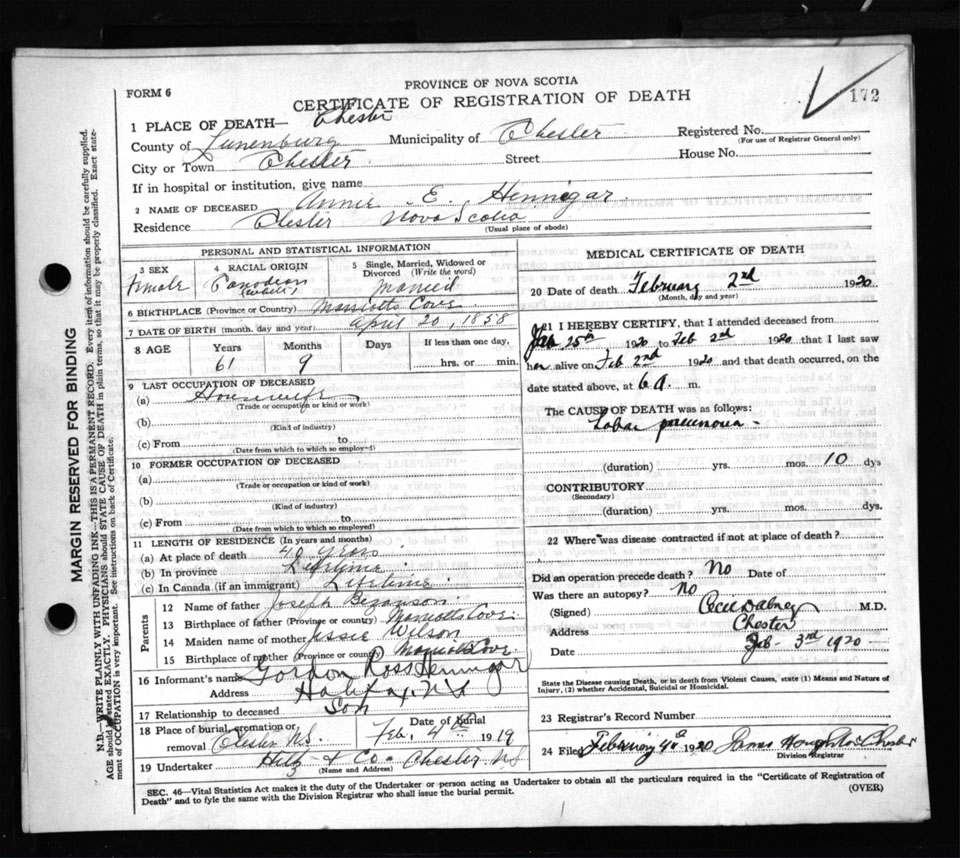 PROVINCE OF NOVA SCOTIA
FORM 6
CERTIFICATE OF REGISTRATION OF DEATH
172
1 PLACE OF DEATH— Chester
County of Lunenburg Municipality of Chester Registered No.
(For use of Registrar General only)
City or Town Chester Street House No.
If in hospital or institution, give name
2 NAME OF DECEASED Annie E. Hennigar
Residence Chester Nova Scotia
(Usual place of abode)
PERSONAL AND STATISTICAL INFORMATION
3 SEX
Female
4 RACIAL ORIGIN
Canadian
(White)
5 Single, Married, Widowed or Divorced (Write the word)
Married
6 BIRTHPLACE (Province or Country) Marriotts Cove
7 DATE OF BIRTH (month, day and year) April 20, 1858
8 AGE Years Months Days If less than one day,
61 9 hrs. or min.
9 LAST OCCUPATION OF DECEASED
(a) Housewife
(Trade or occupation or kind or work)
(b)
(Kind of industry)
(c) From to
(Date from which to which so employed)
10 FORMER OCCUPATION OF DECEASED
(a)
(Trade or occupation or kind of work)
(b)
(Kind of industry)
(c) From to
(Date from which to which so employed)
11 LENGTH OF RESIDENCE (In years and months)
(a) At place of death 40 years
(b) In province Lifetime
(c) In Canada (if an immigrant) Lifetime
Parents
12 Name of father Joseph Bezanson
13 Birthplace of father (Province or country) Marriotts Cove
14 Maiden name of mother Jessie Wilson
15 Birthplace of mother (Province or country) Marriotts Cove
16 Informant's name Gordon Ross Hennigar
Address Halifax, N.S
17 Relationship to deceased Son
18 Place of burial, cremation or removal Chester N.S. Date of burial Feb. 4th 1919
19 Undertaker Hilz & Co. Chester N.S
(Name and Address)
MEDICAL CERTIFICATE OF DEATH
20 Date of death February 2nd 1920
(Month, day and year)
21 I HEREBY CERTIFY, that I attended deceased from
Jan 25th 1920 to Feb 2nd 1920 that I last saw
her alive on Feb 2nd 1920 and that death occurred, on the
date stated above, at 6 a. m.
The CAUSE OF DEATH was as follows:
Lobar pneumonia
(duration) yrs. mos. 10 dys
CONTRIBUTORY
(Secondary)
(duration) yrs. mos. dys.
22 Where was disease contracted if not at place of death?
Did an operation precede death? No Date of
Was there an autopsy? No
(Signed) M.D.
Address Chester
Date Feb- 3rd 1920
State the Disease causing Death, or in death from Violent Causes, state (1) Means and Nature of
Injury, (2) whether Accidental, Suicidal or Homicidal.
23 Registrar's Record Number
24 Filed February 4th 1920 James Chester
Division Registrar
SEC. 46—Vital Statistics Act makes it the duty of the Undertaker or person acting as Undertaker to obtain all the particulars required in the "Certificate of Registration of
Death" and to fyle the same with the Division Registrar who shall issue the burial permit.
(OVER)
MARGIN RESERVED FOR BINDING
N.B.—WRITE PLAINLY WITH UNFADING INK—THIS IS A PERMANENT RECORD. Every item of information should be carefully supplied.
AGE should be stated EXACTLY. PHYSICIANS should STATE CAUSE OF DEATH in plain terms, so that it may be properly classified. Exact state-
ment of OCCUPATION is very important. See instructions on back of Certificate.